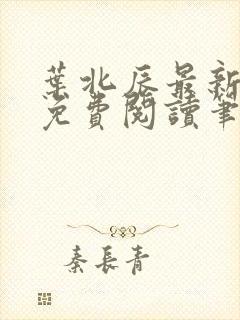 葉北辰最新
免費閱讀筆
秦長青